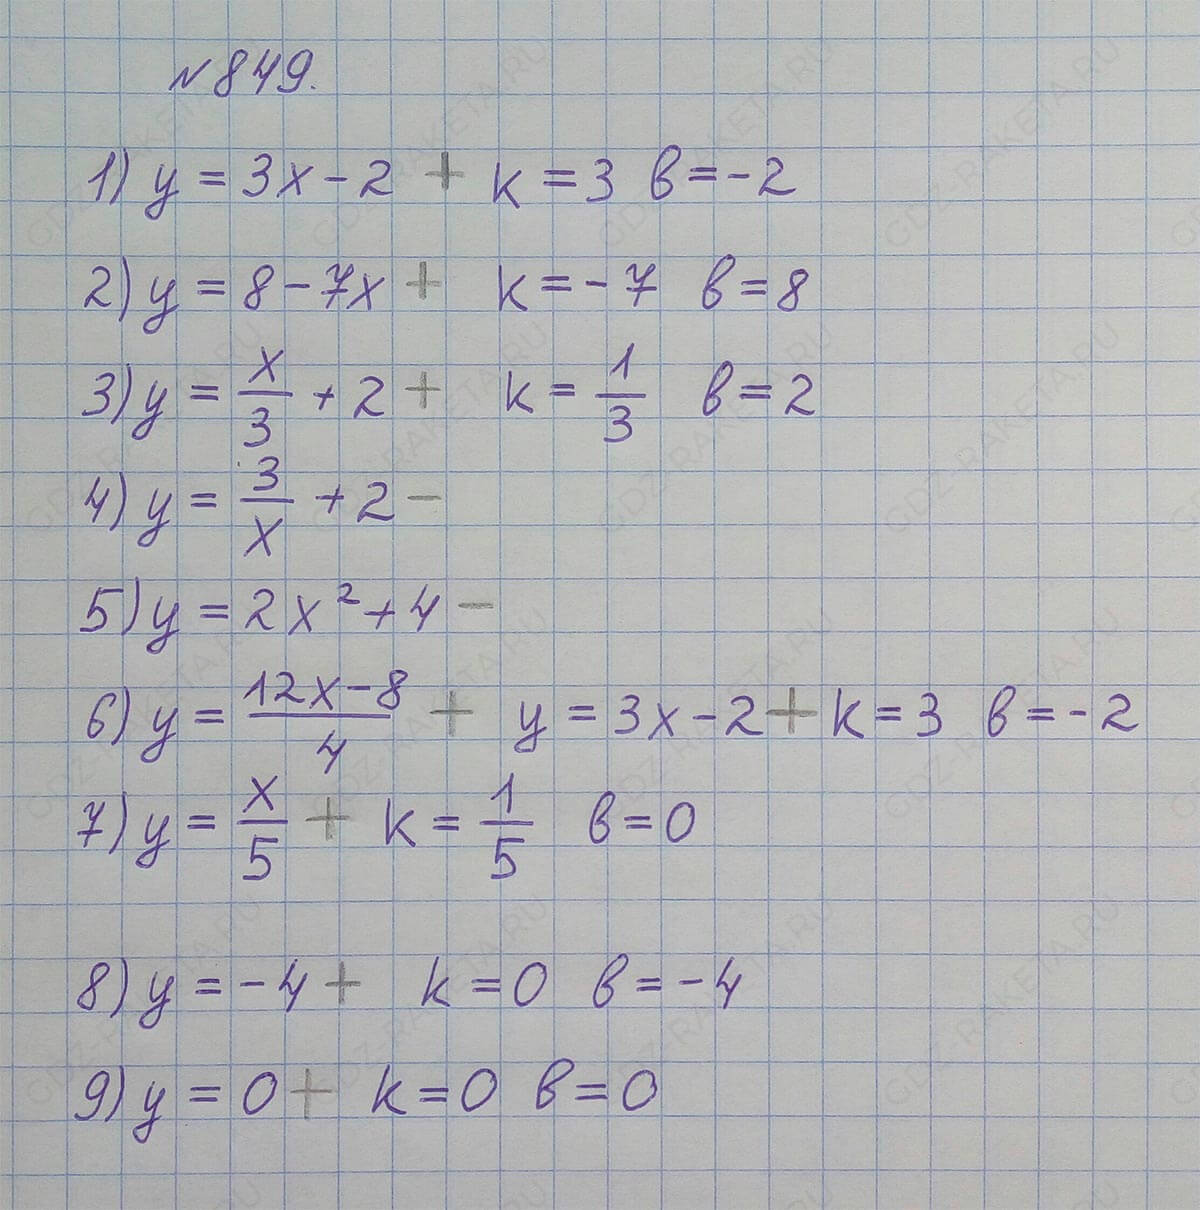 №849.
1) y = 3x - 2 + k = 3 b = -2
2) y = 8 - 7x + k = -7 b = 8
3) y = x/3 + 2 + k = 1/3 b = 2
4) y = 3/x + 2 -
5) y = 2x² + 4 -
6) y = (12x - 8)/4 + y = 3x - 2 + k = 3 b = -2
7) y = x/5 + k = 1/5 b = 0
8) y = -4 + k = 0 b = -4
9) y = 0 + k = 0 b = 0
GDZ-RAKETA.RU